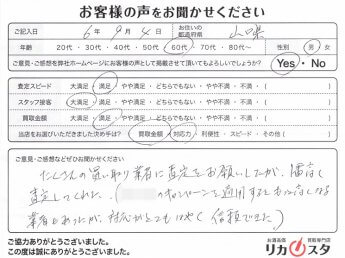 お客様の声をお聞かせください
ご記入日 6年 9月 4日 お住いの都道府県 山口県
年齢 20代・30代・40代・50代・60代・70代・80代～ 性別 男・女
ご意見・ご感想を弊社ホームページにお客様の声として掲載させて頂いてもよろしいでしょうか? Yes・No
査定スピード 大満足・満足・やや満足・どちらでもない・やや不満・不満・( )
スタッフ接客 大満足・満足・やや満足・どちらでもない・やや不満・不満・( )
買取金額 大満足・満足・やや満足・どちらでもない・やや不満・不満・( )
当店をお選びいただきました決め手は? 買取金額・対応力・利便性・スピード・その他( )
ご意見・ご感想などぜひお聞かせください
たくさんの買い取り業者に査定をお願いしたが、1番高く
査定してくれた。( のキャンペーンを適用するともっと高くなる
業者もあったが、対応がとてもはやく信頼できた)
ご協力ありがとうございました。
この度は誠にありがとうございました。
お酒高価 買取専門店
リカスタ